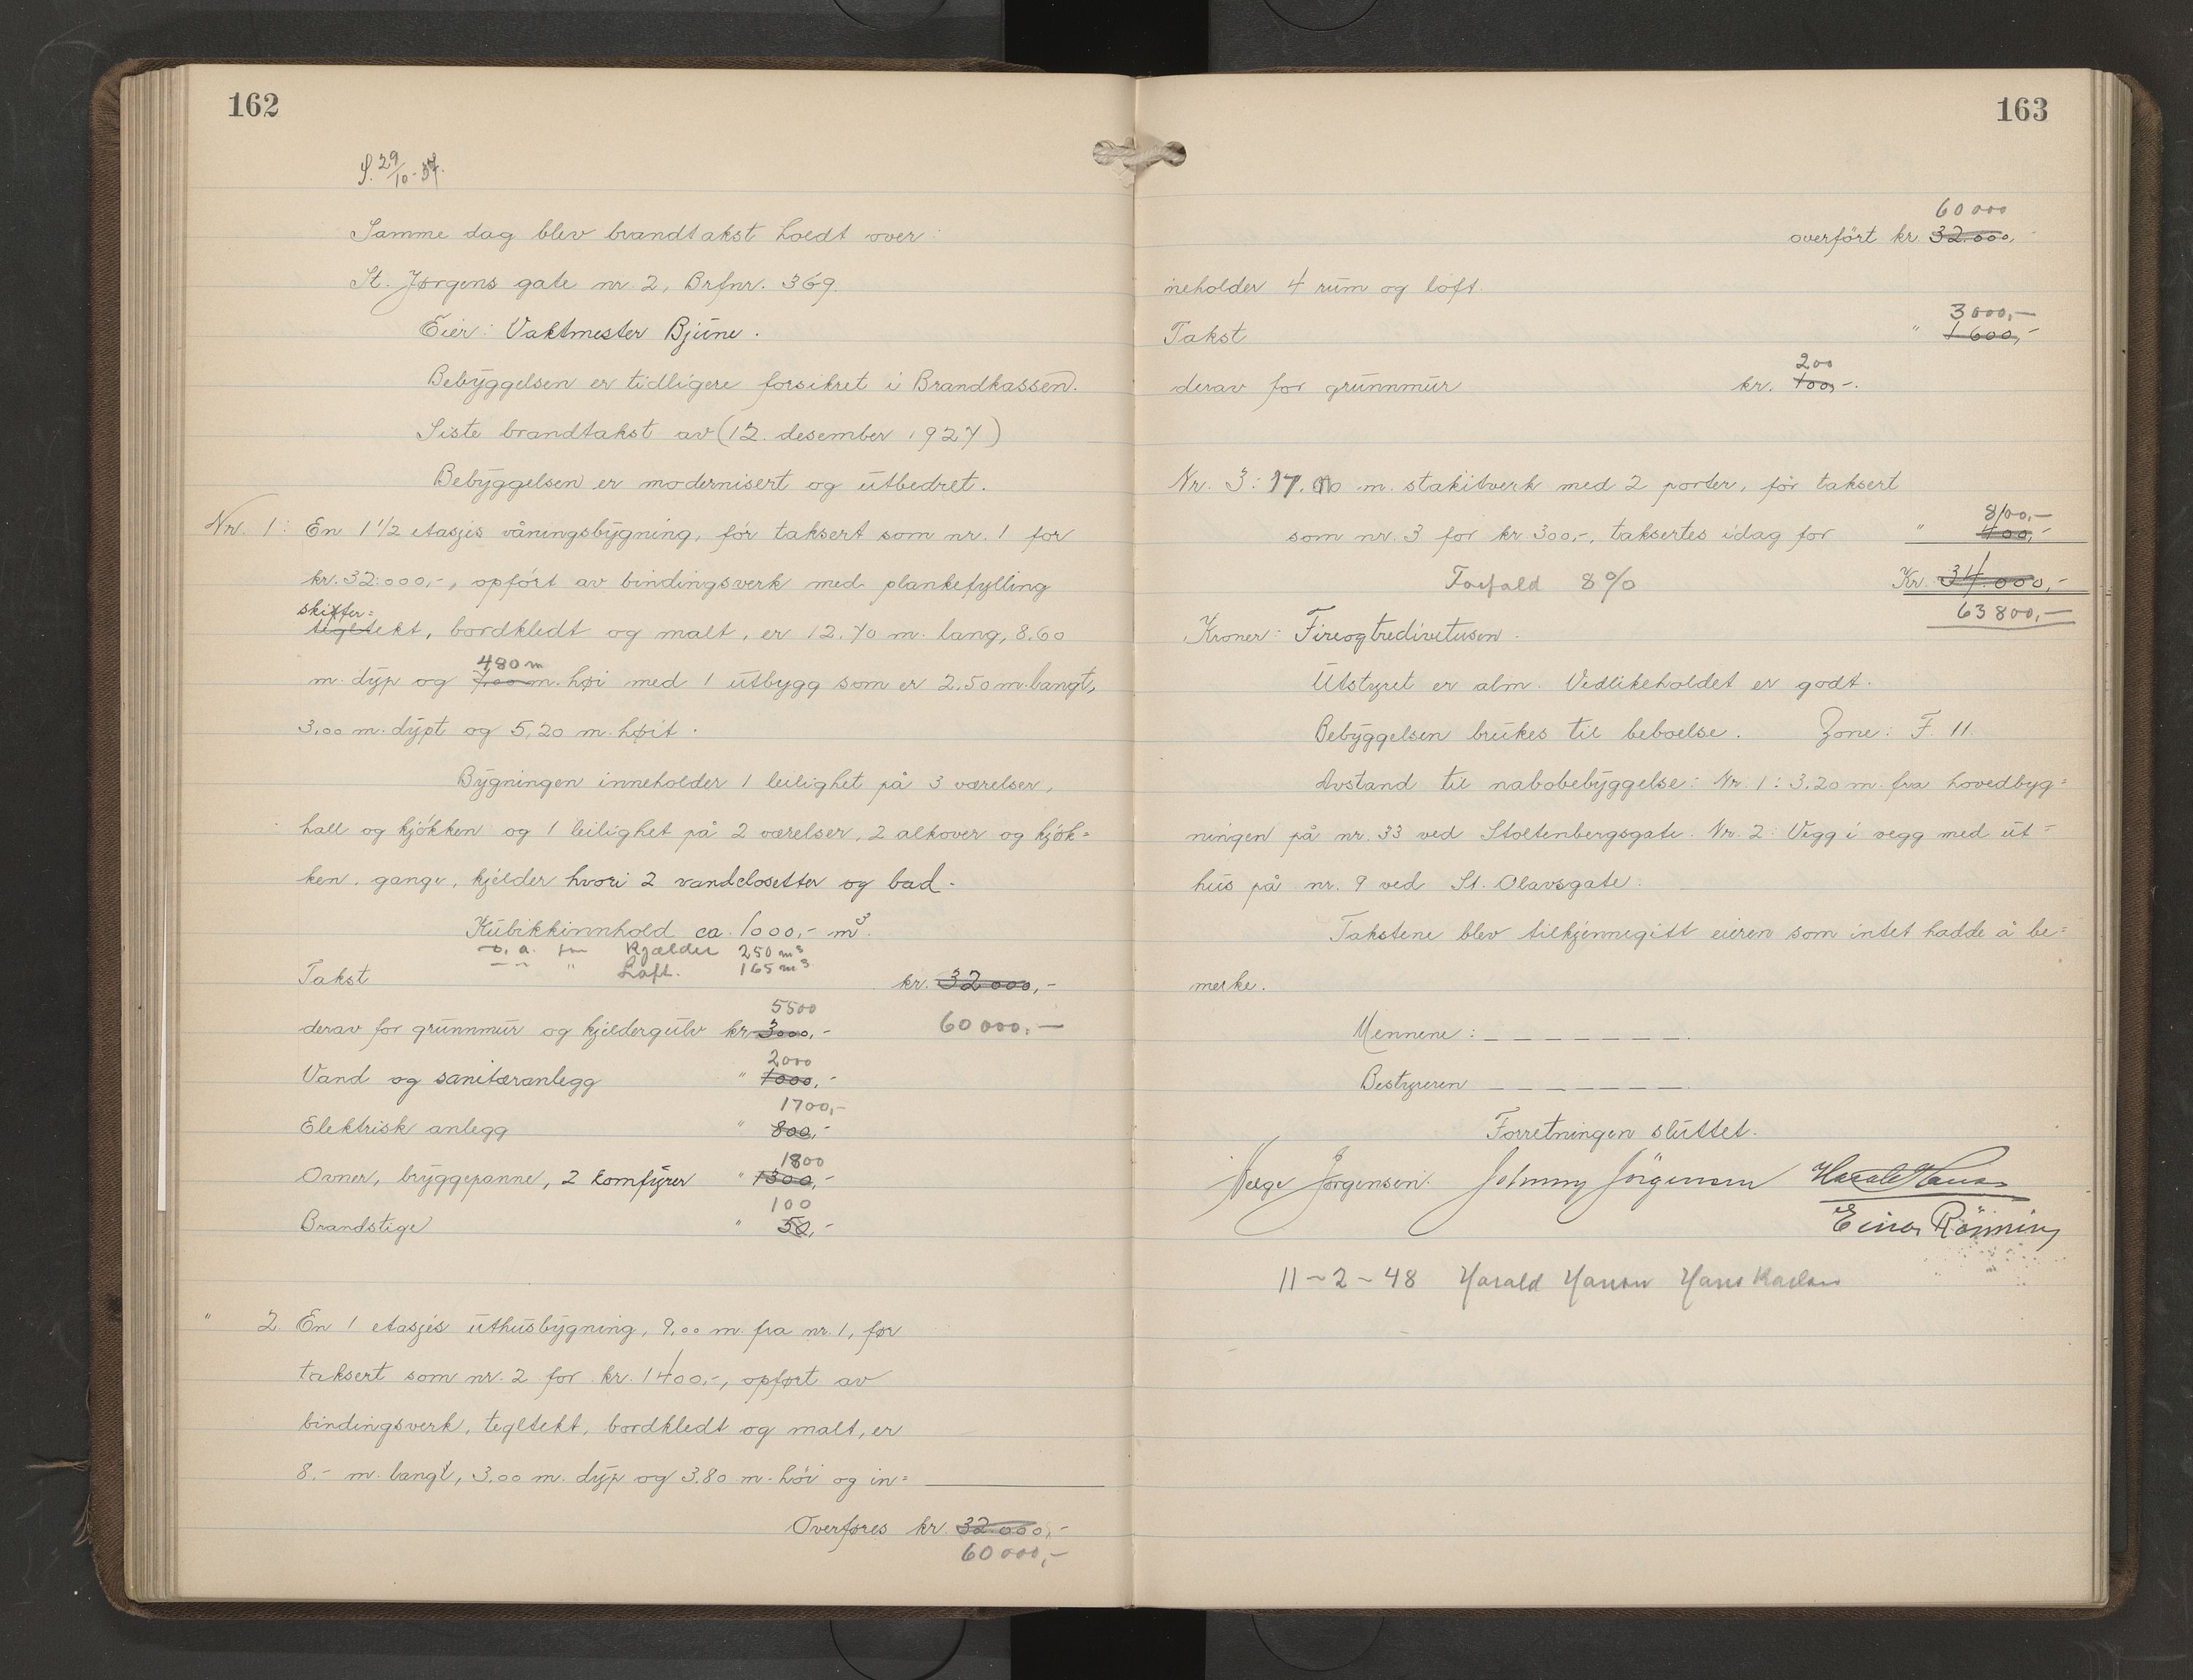 162
S. 29/10-37.
Samme dag blev brandtakst holdt over:
St. Jørgens gate nr. 2, Brfnr. 369.
Eier: Vaktmester Bjune.
Bebyggelsen er tidligere forsikret i Brandkassen.
Siste brandtakst av (12. desember 1927)
Bebyggelsen er modernisert og utbedret.
Nr. 1: En 1 1/2 etasjes våningsbygning, før taksert som nr. 1 for
kr. 32.000,-, opført av bindingsverk med plankefylling
skiffer=
tegltekt, bordkledt og malt, er 12.70 m. lang, 8.60
480 m
m. dyp og 7.00 m. høi med 1 utbygg som er 2,50 m. langt,
3,00 m. dypt og 5,20 m. høit.
Bygningen inneholder 1 leilighet på 3 værelser,
hall og kjøkken og 1 leilighet på 2 værelser, 2 alkover og kjøk=
ken, gange, kjelder hvori 2 vandclosetter og bad.
Kubikkinnhold ca. 1000,- m³.
Kjælder 250 m³
" Loft. 165 m³
Takst kr. 32000,-
5500
derav for grunnmur og kjeldergulv kr. 3000,- 60000,-
2000
Vand og sanitæranlegg " 1000,-
1700,-
Elektrisk anlegg " 800,-
1800
Ovner, bryggepanne, 2 komfyrer " 1300,-
100
Brandstige " 50,-
" 2. En 1 etasjes uthusbygning, 9,00 m. fra nr. 1, før
taksert som nr. 2 for kr. 1400,-, opført av
bindingsverk, tegltekt, bordkledt og malt, er
8.- m. langt, 3,00 m. dyp og 3.80 m. høi og in=
Overføres kr. 32.000,-
60000,-
163
60000
overført kr. 32.000,-
neholder 4 rum og loft.
3000,-
Takst " 1.600,-
200
derav for grunnmur kr. 100,-.
Nr. 3: 17.00 m. stakitverk med 2 porter, før taksert
800,-
som nr. 3 for kr. 300,-, taksertes idag for " 400,-
Forfald 8% Kr. 34.000,-
63800,-
Kroner: Fireogtredivetusen.
Utstyret er alm. Vedlikeholdet er godt.
Bebyggelsen brukes til beboelse. Zone: F. 11.
Avstand til nabobebyggelse: Nr. 1: 3,20 m. fra hovedbyg=
ningen på nr. 33 ved Stoltenbergsgate. Nr. 2: Vegg i vegg med ut=
hus på nr. 9 ved St. Olavsgate.
Takstene blev tilkjennegitt eieren som intet hadde å be=
merke.
Mennene: _ _ _ _ _ _ _.
Bestyreren _ _ _ _ _ _ _.
Forretningen sluttet.
Helge Jørgensen. Johnny Jörgensen Harald Hanson
Einar Rönning
11-2-48 Harald Hanson Hans Karlsen